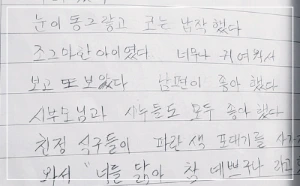 눈이 똥그랗고 코는 납작했다
조그마한 아이였다 너무나 귀여워서
보고 또 보았다 남편이 좋아했다
시부모님과 시누들도 모두 좋아했다
친정 식구들이 파란색 포대기를 사가
와서 "너를 닮아 참 예쁘구나 라고